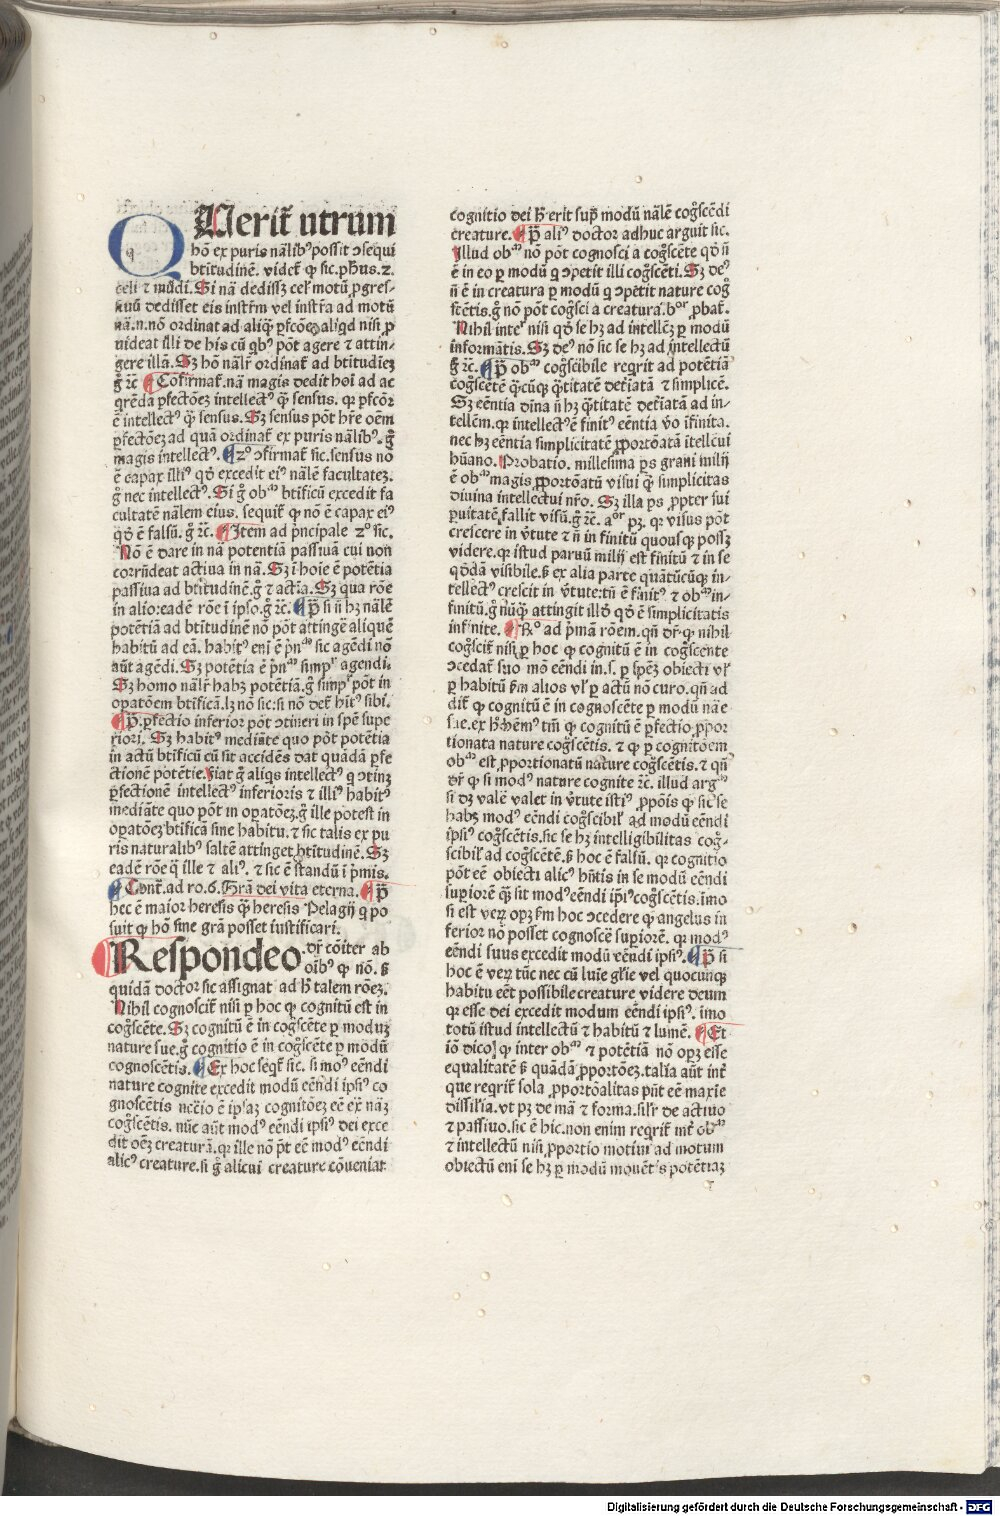 QUerit᷑ utrum
hō ex puris nālibꝰ possit ɔsequi
btitudinē. videt᷑ ꝙ sic. pħus. 2.
celi ⁊ mūdi. Si nā dedissꝫ cel' motū ꝓgres-
siuū dedisset eis instr̄m vel instr̄a ad motū
nā. n. nō ordinat ad aliꝙ ꝑfcōꝫ aliqd nisi ꝓ
uideat illi de his cū qbꝰ pōt agere ⁊ attin-
gere illā. Sꝫ hō nālr̄ ordinat᷑ ad btitudīeꝫ
g̊ ⁊c̄ Cōfirmat᷑. nā magis dedit hoī ad ac
qrēda ꝑfectōeꝫ intellectꝰ ꝙ̄ sensus. qꝛ ꝑfcōr
ē intellectꝰ ꝙ̄ sensus. Sꝫ sensus pōt hr̄e oēm
ꝑfectōeꝫ ad quā ordinat᷑ ex puris nālibꝰ. g̊
magis intellectꝰ. 2º ɔfirmat᷑ sic. sensus nō
ē capax illiꝰ qđ excedit eiꝰ nālē facultateꝫ.
g̊ nec intellectꝰ. Si g̊ obᵐ btificū excedit fa
cultatē nālem eius. sequit᷑ ꝙ nō ē capax eiꝰ
qđ ē falsū. g̊ ⁊c̄. Item ad pͥncipale 2º sic.
Nō ē dare in nā potentiā passiuā cui non
corrn̄deat actiua in nā. Sꝫ ī hoīe ē potētia
passiua ad btitudinē. g̊ ⁊ actīa. Sꝫ qua rōe
in alio: eadē rōe ī ipso. g̊ ⁊c̄. P̄ si n̄ hꝫ nālē
potētiā ad btitudinē nō pōt attingē aliquē
habitū ad eā. habitꝰ eni ē pͥnᵐ sic agēdi nō
aūt agēdi. Sꝫ potētia ē pͥnᵐ simpʳ agendi.
Sꝫ homo nālr̄ habꝫ potētiā. g̊ simpʳ pōt in
opatōem btificā. lꝫ nō sic: si nō det᷑ hītꝰ sibi.
P̄. ꝑfectio inferior pōt ɔtineri in spē supe
riori. Sꝫ habitꝰ mediāte quo pōt potētia
in actū btificū cū sit accidēs dat quādā ꝑfe
ctionē potētie. Fiat g̊ aliqs intellectꝰ q ɔtinꝫ
ꝑfectionē intellectꝰ inferioris ⁊ illiꝰ habitꝰ
mediāte quo pōt in opatōeꝫ. g̊ ille potest in
opatōeꝫ btificā sine habitu. ⁊ sic talis ex pu
ris naturalibꝰ saltē attinget btitudinē. Sꝫ
eadē rōe q̄ ille ⁊ aliꝰ. ⁊ sic ē stāndū ī pͥmis.
Cont᷑. ad ro. 6. Gr̄a dei vita eterna. P̄
hec ē maior heresis ꝙ̄ heresis Pelagij q po
suit ꝙ hō sine grā posset iustificari.
Respondeo dr̄ cōiter ab
oībꝰ ꝙ nō. ß
quidā doctor sic assignat ad ħ talem rōeꝫ.
Nihil cognoscit᷑ nisi ꝑ hoc ꝙ cognitū est in
cog̊scēte. Sꝫ cognitū ē in cog̊scēte ꝑ moduꝫ
nature sue. g̊ cognitio ē in cog̊scēte ꝑ modū
cognoscētis. Ex hoc seqt᷑ sic. si moꝰ eēndi
nature cognite excedit modū eēndi ipsiꝰ co
gnoscētis
cog̊scētis. nūc aūt modꝰ eēndi ipsiꝰ dei exce
dit oēꝫ creaturā. qꝛ ille nō pōt eē modꝰ eēndi
alicꝰ creature. si g̊ alicui creature cōueniat
cognitio dei ħ erit supͣ modū nālē cog̊scēdi
creature. P̄ aliꝰ doctor adhuc arguit sic.
Illud obᵐ nō pōt cognosci a cog̊scēte qđ n̄
ē in eo ꝑ modū q ɔpetit illi cog̊scēti. Sꝫ deꝰ
n̄ ē in creatura ꝑ modū q ɔpetit nature cog̊
scētis. g̊ nō pōt cog̊sci a creatura. bʳ ꝓbat᷑.
Nihil intelʳ nisi qđ se hꝫ ad intellcꝫ ꝑ modū
informātis. Sꝫ deꝰ nō sic se hꝫ ad intellectū
g̊ ⁊c̄. P̄ obᵐ cog̊scibile reqrit ad potētiā
cog̊scētē ꝙ̄cūqꝫ q̄titatē det̄iatā ⁊ simplicē.
Sꝫ eēntia dīna n̄ hꝫ q̄titatē det̄iatā ad in-
tellēm. qꝛ intellectꝰ ē finitꝰ eēntia v̊o ifinita.
nec hꝫ eēntia simplicitatē ꝓportōatā itellcui
hūano. Probatio. millesima ps grani milij
ē obᵐ magis ꝓportōatū visui ꝙ̄ simplicitas
diuina intellectui nr̄o. Sꝫ illa ps ꝓpter sui
ꝑuitatē fallit visū. g̊ ⁊c̄. aºʳ pꝫ. qꝛ visus pōt
crescere in v̊tute ⁊ n̄ in finitū quousqꝫ possꝫ
videre. qꝛ istud paruū milij est finitū ⁊ in se
qōdā visibile. ß ex alia parte quātūcūqꝫ in-
tellectꝰ crescit in v̊tute: tn̄ ē finitꝰ ⁊ obᵐ in-
finitū. g̊ nūq̄ attingit illđ qđ ē simplicitatis
infinite. Rº ad pͥmā rōem. qn̄ dr̄ ꝙ nihil
cog̊scit᷑ nisi ꝑ hoc ꝙ cognitū ē in cog̊scente
ɔcedat᷑ suo mō eēndi in. s. ꝑ spēꝫ obiecti vl'
ꝑ habitū ẜm alios vl' ꝑ actū nō curo. qn̄ ad
dit᷑ ꝙ cognitū ē in cognoscēte ꝑ modū nāe
sue. ex ħ hēmꝰ tm̄ ꝙ cognitū ē ꝑfectio ꝓpor
tionata nature cog̊scētis. ⁊ ꝙ ꝑ cognitōem
obᵐ est ꝓportionatū nature cog̊scētis. ⁊ qn̄
dr̄ ꝙ si modꝰ nature cognite ⁊c̄. illud argᵐ
si dꝫ valē valet in v̊tute istiꝰ ꝓpōis ꝙ sic se
habꝫ modꝰ eēndi cog̊scibil' ad modū eēndi
ipsiꝰ cog̊scētis. sic se hꝫ intelligibilitas cog̊-
scibil' ad cog̊scētē. ß hoc ē falsū. qꝛ cognitio
pōt eē obiecti alicꝰ hn̄tis in se modū eēndi
superiorē ꝙ̄ sit modꝰ eēndi ipīꝰ cog̊scētis. īmo
si est verꝫ opꝫ ẜm hoc ɔcedere ꝙ angelus in
ferior nō posset cognoscē superiorē. qꝛ modꝰ
eēndi suus excedit modū eēndi ipsiꝰ. P̄ si
hoc ē verꝫ tūc nec cū luīe gl'ie vel quocunqꝫ
habitu eēt possibile creature videre deum
qꝛ esse dei excedit modum eēndi ipsiꝰ. imo
totū istud intellectū ⁊ habitū ⁊ lumē. Et
iō dico ꝙ inter obᵐ ⁊ potētiā nō opꝫ esse
equalitatē ß quādā ꝓportōeꝫ. talia aūt int᷑
que reqrit᷑ sola ꝓportōalitas pn̄t eē maxīe
dissil'ia. vt pꝫ de mā ⁊ forma. sil'r de actiuo
⁊ passiuo. sic ē hic. non enim reqrit᷑ int᷑ obᵐ
⁊ intellectū nisi ꝓportio motiui ad motum
obiectū eni se hꝫ ꝑ modū mouētis potētiaꝫ
Digitalisierung gefördert durch die Deutsche Forschungsgemeinschaft - DFG